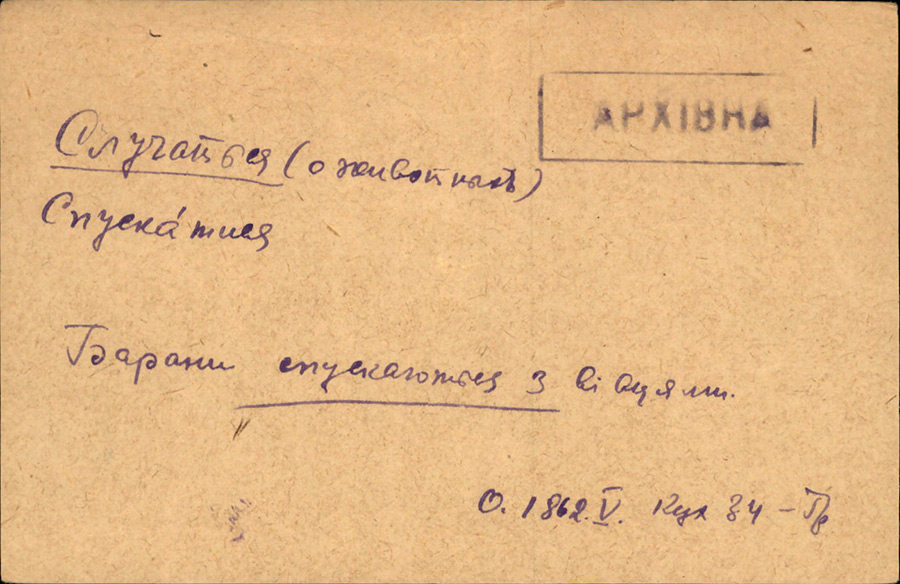 АРХІВНА
Случаться (о животныхъ)
Спуска́тися
Барани спускаються з вівцями.
О. 1862. V. Кух 34 – Гр